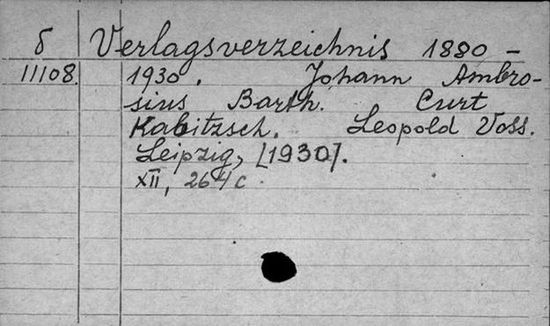 б Verlagsverzeichnis 1880 -
11108. 1930. Johann Ambro-
sius Barth. Curt
Kabitzsch. Leopold Voss.
Leipzig, [1930].
XII, 264 c.